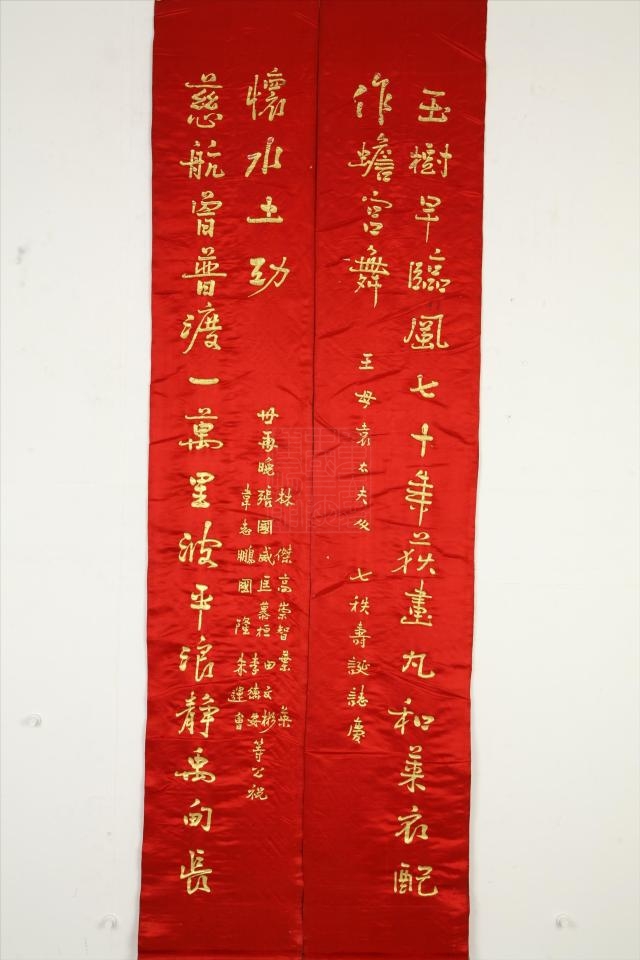 玉樹早臨風七十年荻畫丸和萊衣配
作蟾宮舞
王母袁太夫人 七秩壽誕誌慶
慈航曾普渡一萬里波平浪靜禹甸長
懷水土功
林傑 高崇智 葉
世再晚 張國威 匡慕桓 田文彬 等公祝
韋志鵬 國隆 李德安 朱運會